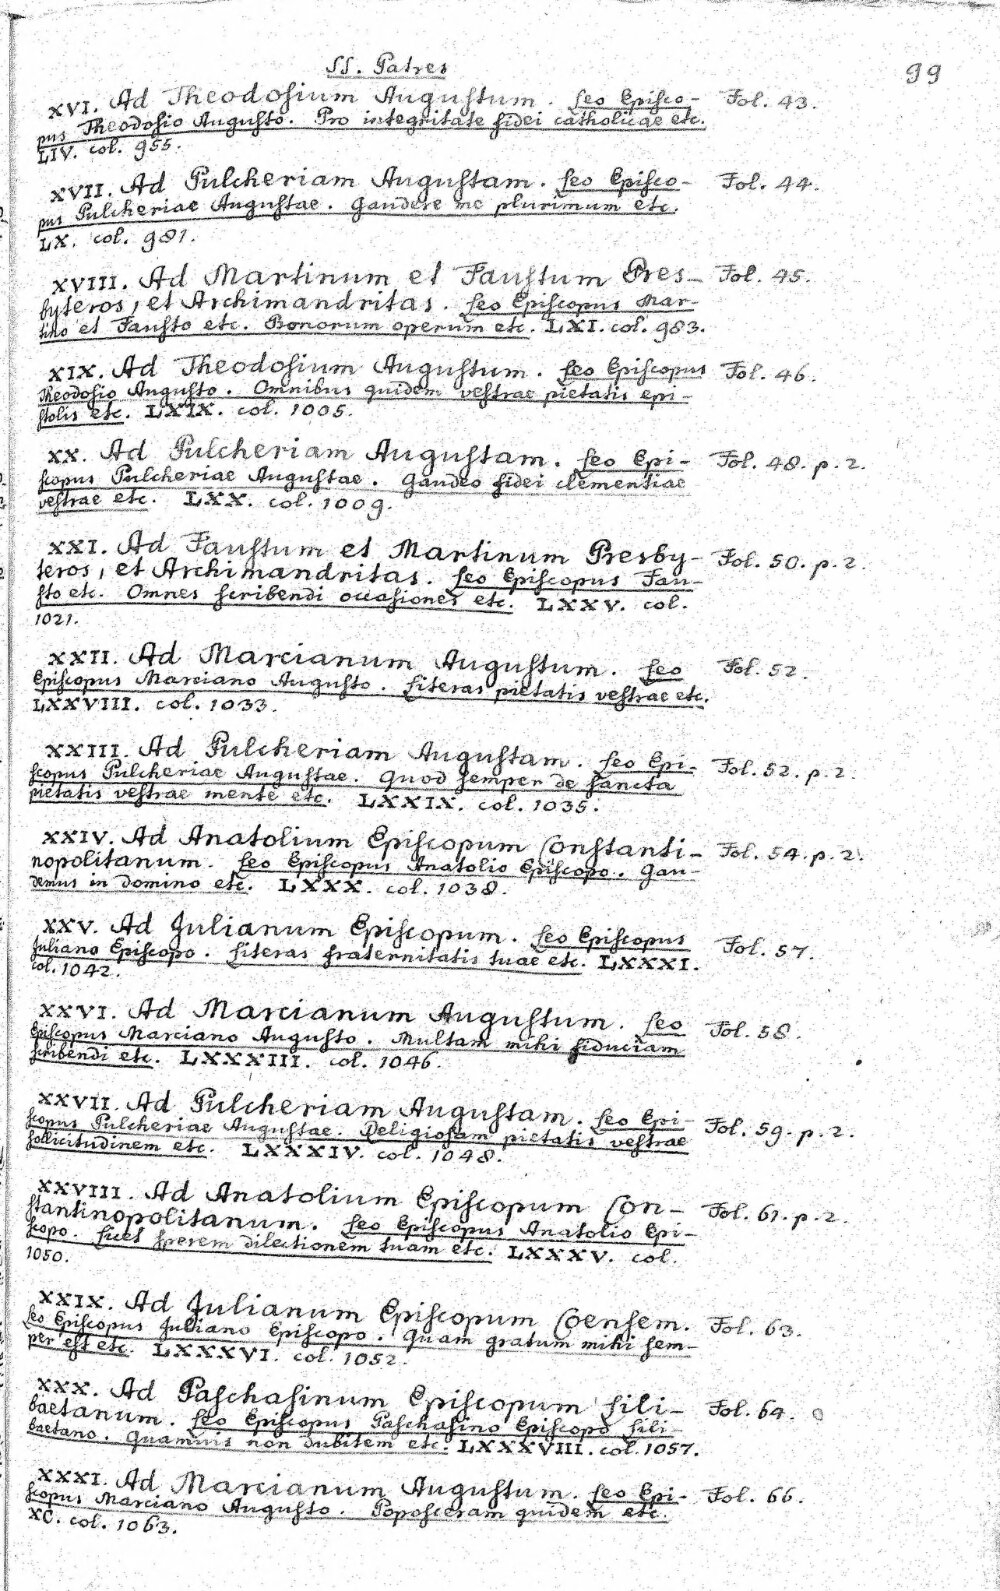 SS. Patres
99
XVI. Ad Theodosium Augustum. Leo Episco- Fol. 43.
pus Theodosio Augusto. Pro integritate fidei catholicae etc.
LIV. col. 955.
XVII. Ad Pulcheriam Augustam. Leo Episco- Fol. 44.
pus Pulcheriae Augustae. Gaudere me plurimum etc.
LX. col. 981.
XVIII. Ad Martinum et Faustum Pres- Fol. 45.
byteros, et Archimandritas. Leo Episcopus Mar-
tino et Fausto etc. Bonorum operum etc. LXI. col. 983.
XIX. Ad Theodosium Augustum. Leo Episcopus Fol. 46.
Theodosio Augusto. Omnibus quidem vestrae pietatis epi-
stolis etc. LXIX. col. 1005.
XX. Ad Pulcheriam Augustam. Leo Epi- Fol. 48. p. 2.
scopus Pulcheriae Augustae. Gaudeo fidei clementiae
vestrae etc. LXX. col. 1009.
XXI. Ad Faustum et Martinum Presby- Fol. 50. p. 2.
teros, et Archimandritas. Leo Episcopus Fau-
sto etc. Omnes scribendi occasiones etc. LXXV. col.
1021.
XXII. Ad Marcianum Augustum. Leo Fol. 52.
Episcopus Marciano Augusto. Literas pietatis vestrae etc.
LXXVIII. col. 1033.
XXIII. Ad Pulcheriam Augustam. Leo Epi- Fol. 52. p. 2.
scopus Pulcheriae Augustae. Quod semper de sancta
pietatis vestrae mente etc. LXXIX. col. 1035.
XXIV. Ad Anatolium Episcopum Constanti- Fol. 54. p. 2.
nopolitanum. Leo Episcopus Anatolio Episcopo. Gau-
demus in domino etc. LXXX. col. 1038.
XXV. Ad Julianum Episcopum. Leo Episcopus Fol. 57.
Juliano Episcopo. Literas fraternitatis tuae etc. LXXXI.
col. 1042.
XXVI. Ad Marcianum Augustum. Leo Fol. 58.
Episcopus Marciano Augusto. Multam mihi fiduciam
scribendi etc. LXXXIII. col. 1046.
XXVII. Ad Pulcheriam Augustam. Leo Epi- Fol. 59. p. 2.
scopus Pulcheriae Augustae. Religiosam pietatis vestrae
sollicitudinem etc. LXXXIV. col. 1048.
XXVIII. Ad Anatolium Episcopum Con- Fol. 61. p. 2.
stantinopolitanum. Leo Episcopus Anatolio Epi-
scopo. Licet sperem dilectionem tuam etc. LXXXV. col.
1050.
XXIX. Ad Julianum Episcopum Coensem. Fol. 63.
Leo Episcopus Juliano Episcopo. Quam gratum mihi sem-
per est etc. LXXXVI. col. 1052.
XXX. Ad Paschasinum Episcopum Lili- Fol. 64.
baetanum. Leo Episcopus Paschasino Episcopo Lili-
baetano. Quamvis non dubitem etc. LXXXVIII. col. 1057.
XXXI. Ad Marcianum Augustum. Leo Epi- Fol. 66.
scopus Marciano Augusto. Poposceram quidem etc.
XC. col. 1063.